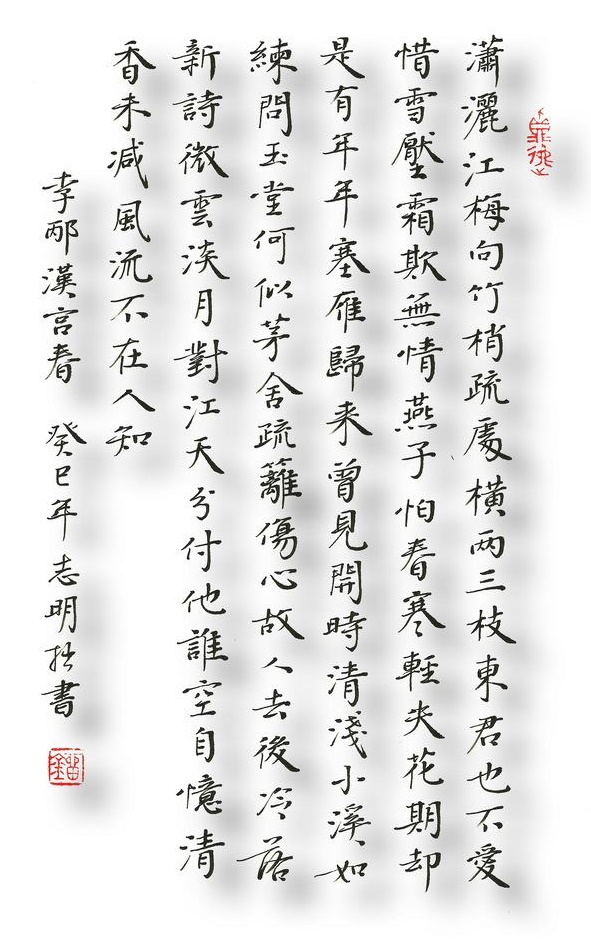 瀟灑江梅向竹梢疏處橫两三枝東君也不愛
惜雪壓霜欺無情燕子怕春寒輕失花期却
是有年年塞雁歸来曾見開時清淺小溪如
練問玉堂何似茅舍疏籬傷心故人去後冷落
新詩微雲淡月對江天分付他誰空自憶清
香未減風流不在人知
李邴漢宫春 癸巳年志明拙書